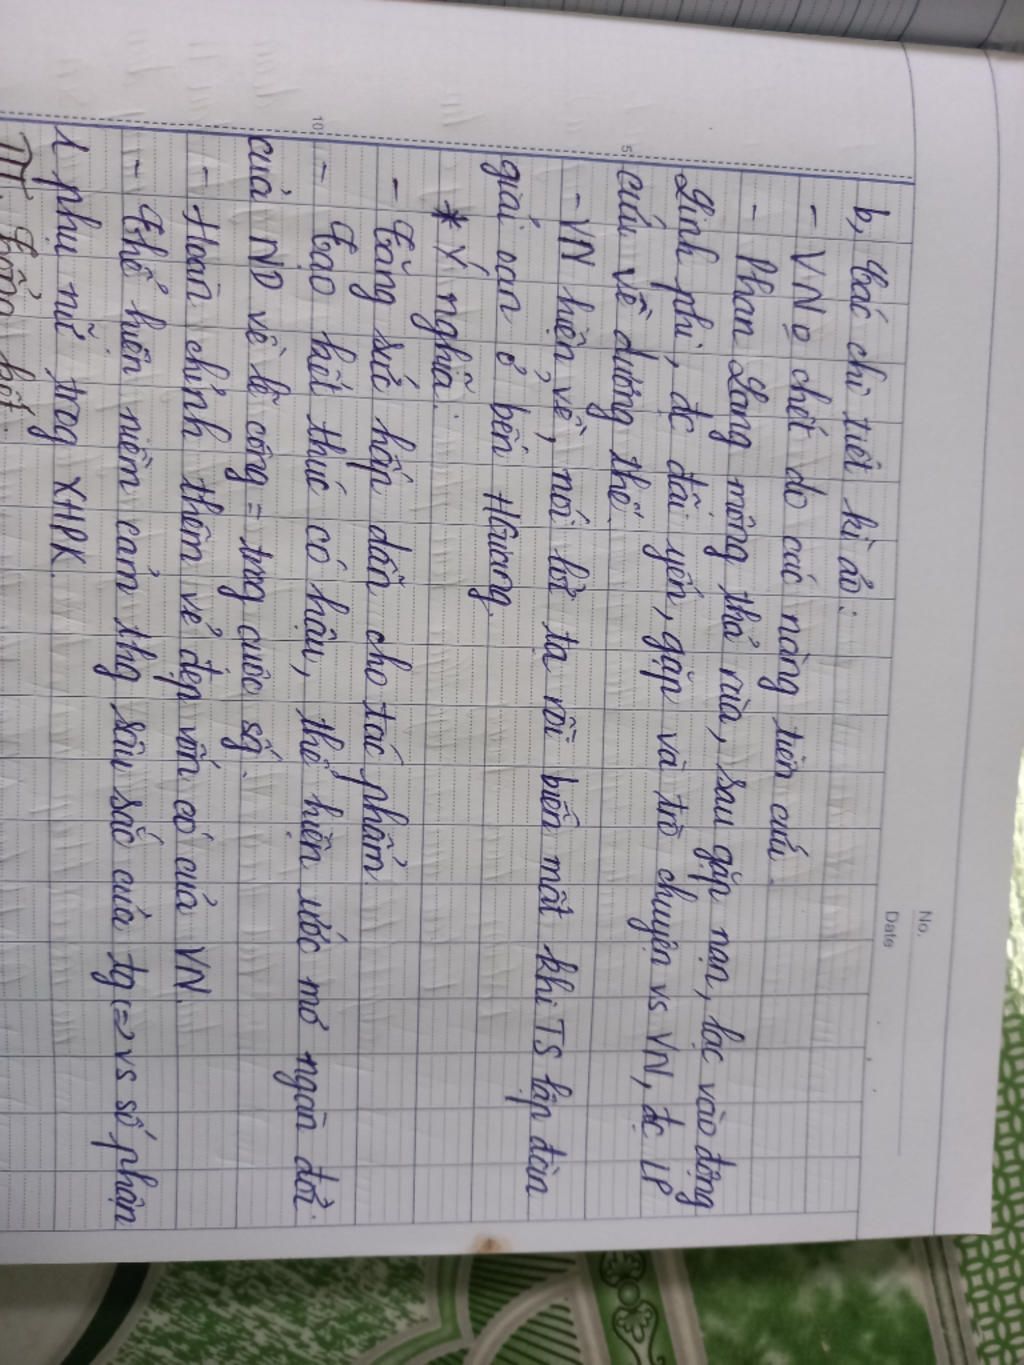 No.
Date
b, Các chi tiết kì ảo:
- VN 0 chết do các nàng tiên cứu.
- Phan Lang mộng thả rùa, sau gặp nạn, lạc vào động
Linh phi, đc đãi yến, gặp và trò chuyện vs VN, đc LP
5 cứu về dương thế.
- VN hiện về, nói lời tạ rồi biến mất khi TS lập đàn
giải oan ở bến H Giang.
* Ý nghĩa:
- Tăng sức hấp dẫn cho tác phẩm.
10 - Tạo kết thúc có hậu, thể hiện ước mơ ngàn đời
của ND về lẽ công = trng cuộc sg.
- Hoàn chỉnh thêm vẻ đẹp vốn có của VN.
- Thể hiện niềm cảm thg sâu sắc của tg => vs số phận
phụ nữ trog XHPK.
III. Tổng kết: